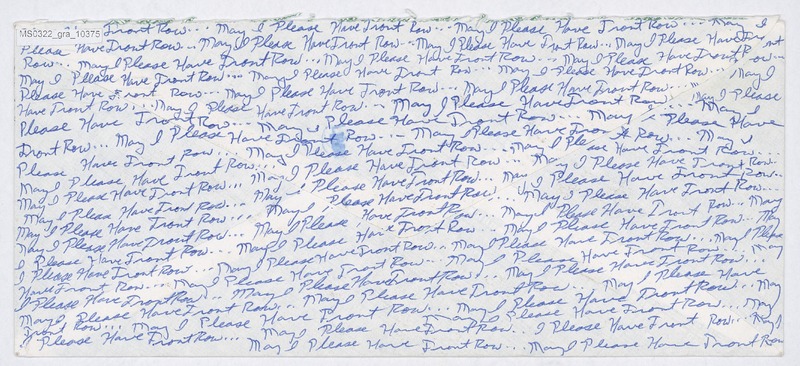 MS0322_gra_10375
Front Row... May I Please Have Front Row... May I Please Have Front Row... May I
Please Have Front Row... May I Please Have Front Row... May I Please Have Front Row... May I Please Have
Row... May I Please Have Front Row... May I Please Have Front Row... May I Please Have Front Row...
May I Please Have Front Row... May I Please Have Front Row... May I Please Have Front Row...
Please Have Front Row... May I Please Have Front Row... May I Please Have Front Row... May I
Have Front Row... May I Please Have Front Row... May I Please Have Front Row... May I Please
Please Have Front Row... May I Please Have Front Row... May I Please Have
Front Row... May I Please Have Front Row... May I Please Have Front Row... May I
Please Have Front Row... May I Please Have Front Row... May I Please Have Front Row...
May I Please Have Front Row... May I Please Have Front Row... May I Please Have Front Row...
May I Please Have Front Row... May I Please Have Front Row... May I Please Have Front Row...
May I Please Have Front Row... May I Please Have Front Row... May I Please Have Front Row...
May I Please Have Front Row... May I Please Have Front Row... May I Please Have Front Row... May
May I Please Have Front Row... May I Please Have Front Row... May I Please Have Front Row... May
I Please Have Front Row... May I Please Have Front Row... May I Please Have Front Row... May I Please
I Please Have Front Row... May I Please Have Front Row... May I Please Have Front Row... May
Have Front Row... May I Please Have Front Row... May I Please Have Front Row...
I Please Have Front Row... May I Please Have Front Row... May I Please Have
May I Please Have Front Row... May I Please Have Front Row... May I Please Have Front Row... May
Front Row... May I Please Have Front Row... May I Please Have Front Row... May
I Please Have Front Row... May I Please Have Front Row... I Please Have Front Row... May I
May I Please Have Front Row... May I Please Have Front Row